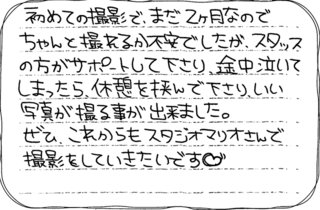 初めての撮影で、まだ2ヶ月なので
ちゃんと撮れるか不安でしたが、スタッフ
の方がサポートして下さり、途中泣いて
しまったら、休憩を挟んで下さり、いい
写真が撮る事が出来ました。
ぜひ、これからもスタジオマリオさんで
撮影をしていきたいです♡